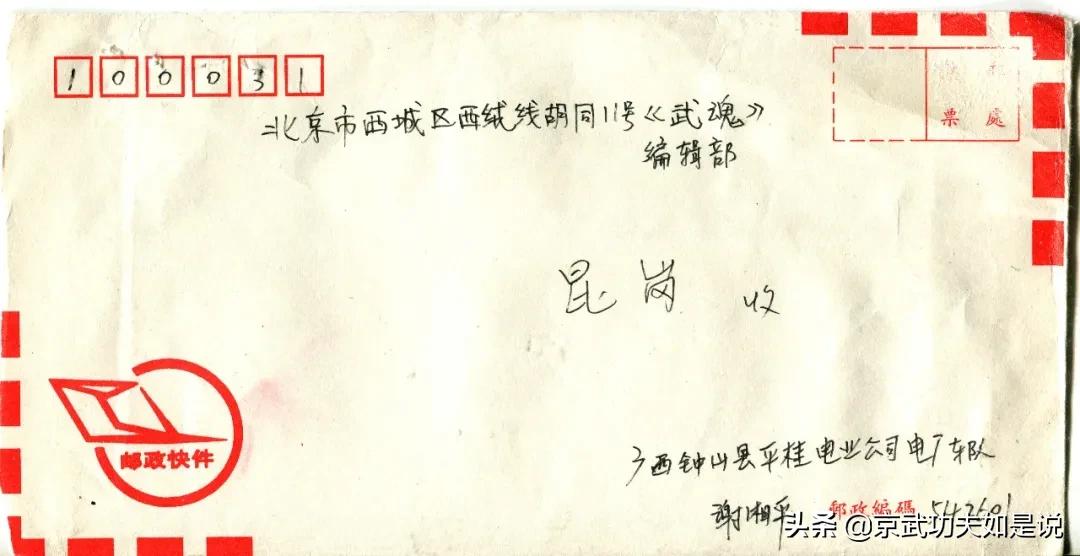 100031
北京市西城区西绒线胡同11号《武魂》
编辑部
票處
昆岗 收
邮政快件
广西钟山县平桂电业公司电厂车队
谢湘平 郵政編碼 542601
头条 @京武功夫如是说